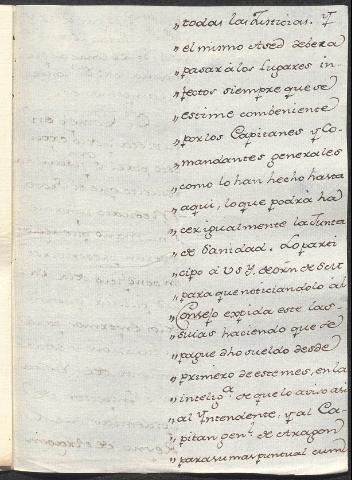 "todas las Justicias. Y
"el mismo Ased debera
"pasar à los Lugares in-
"fectos siempre que se
"estime combeniente
"por los Capitanes y Co-
"mandantes generales
"como lo han hecho hasta
"aqui, lo que podrà ha
"cer igualmente la Junta
"de Sanidad. Lo parti
"cipo à V S Y. de orñ de S M
"para que noticiandolo àl
"Consejo expida este las
"suias haciendo que se
"pague dho sueldo desde
"primero de este mes, en la
"intelig.ª de que lo aviso asi
"al Yntendente, y al Ca-
"pitan gen.l de Aragon
"para su mas puntual cum